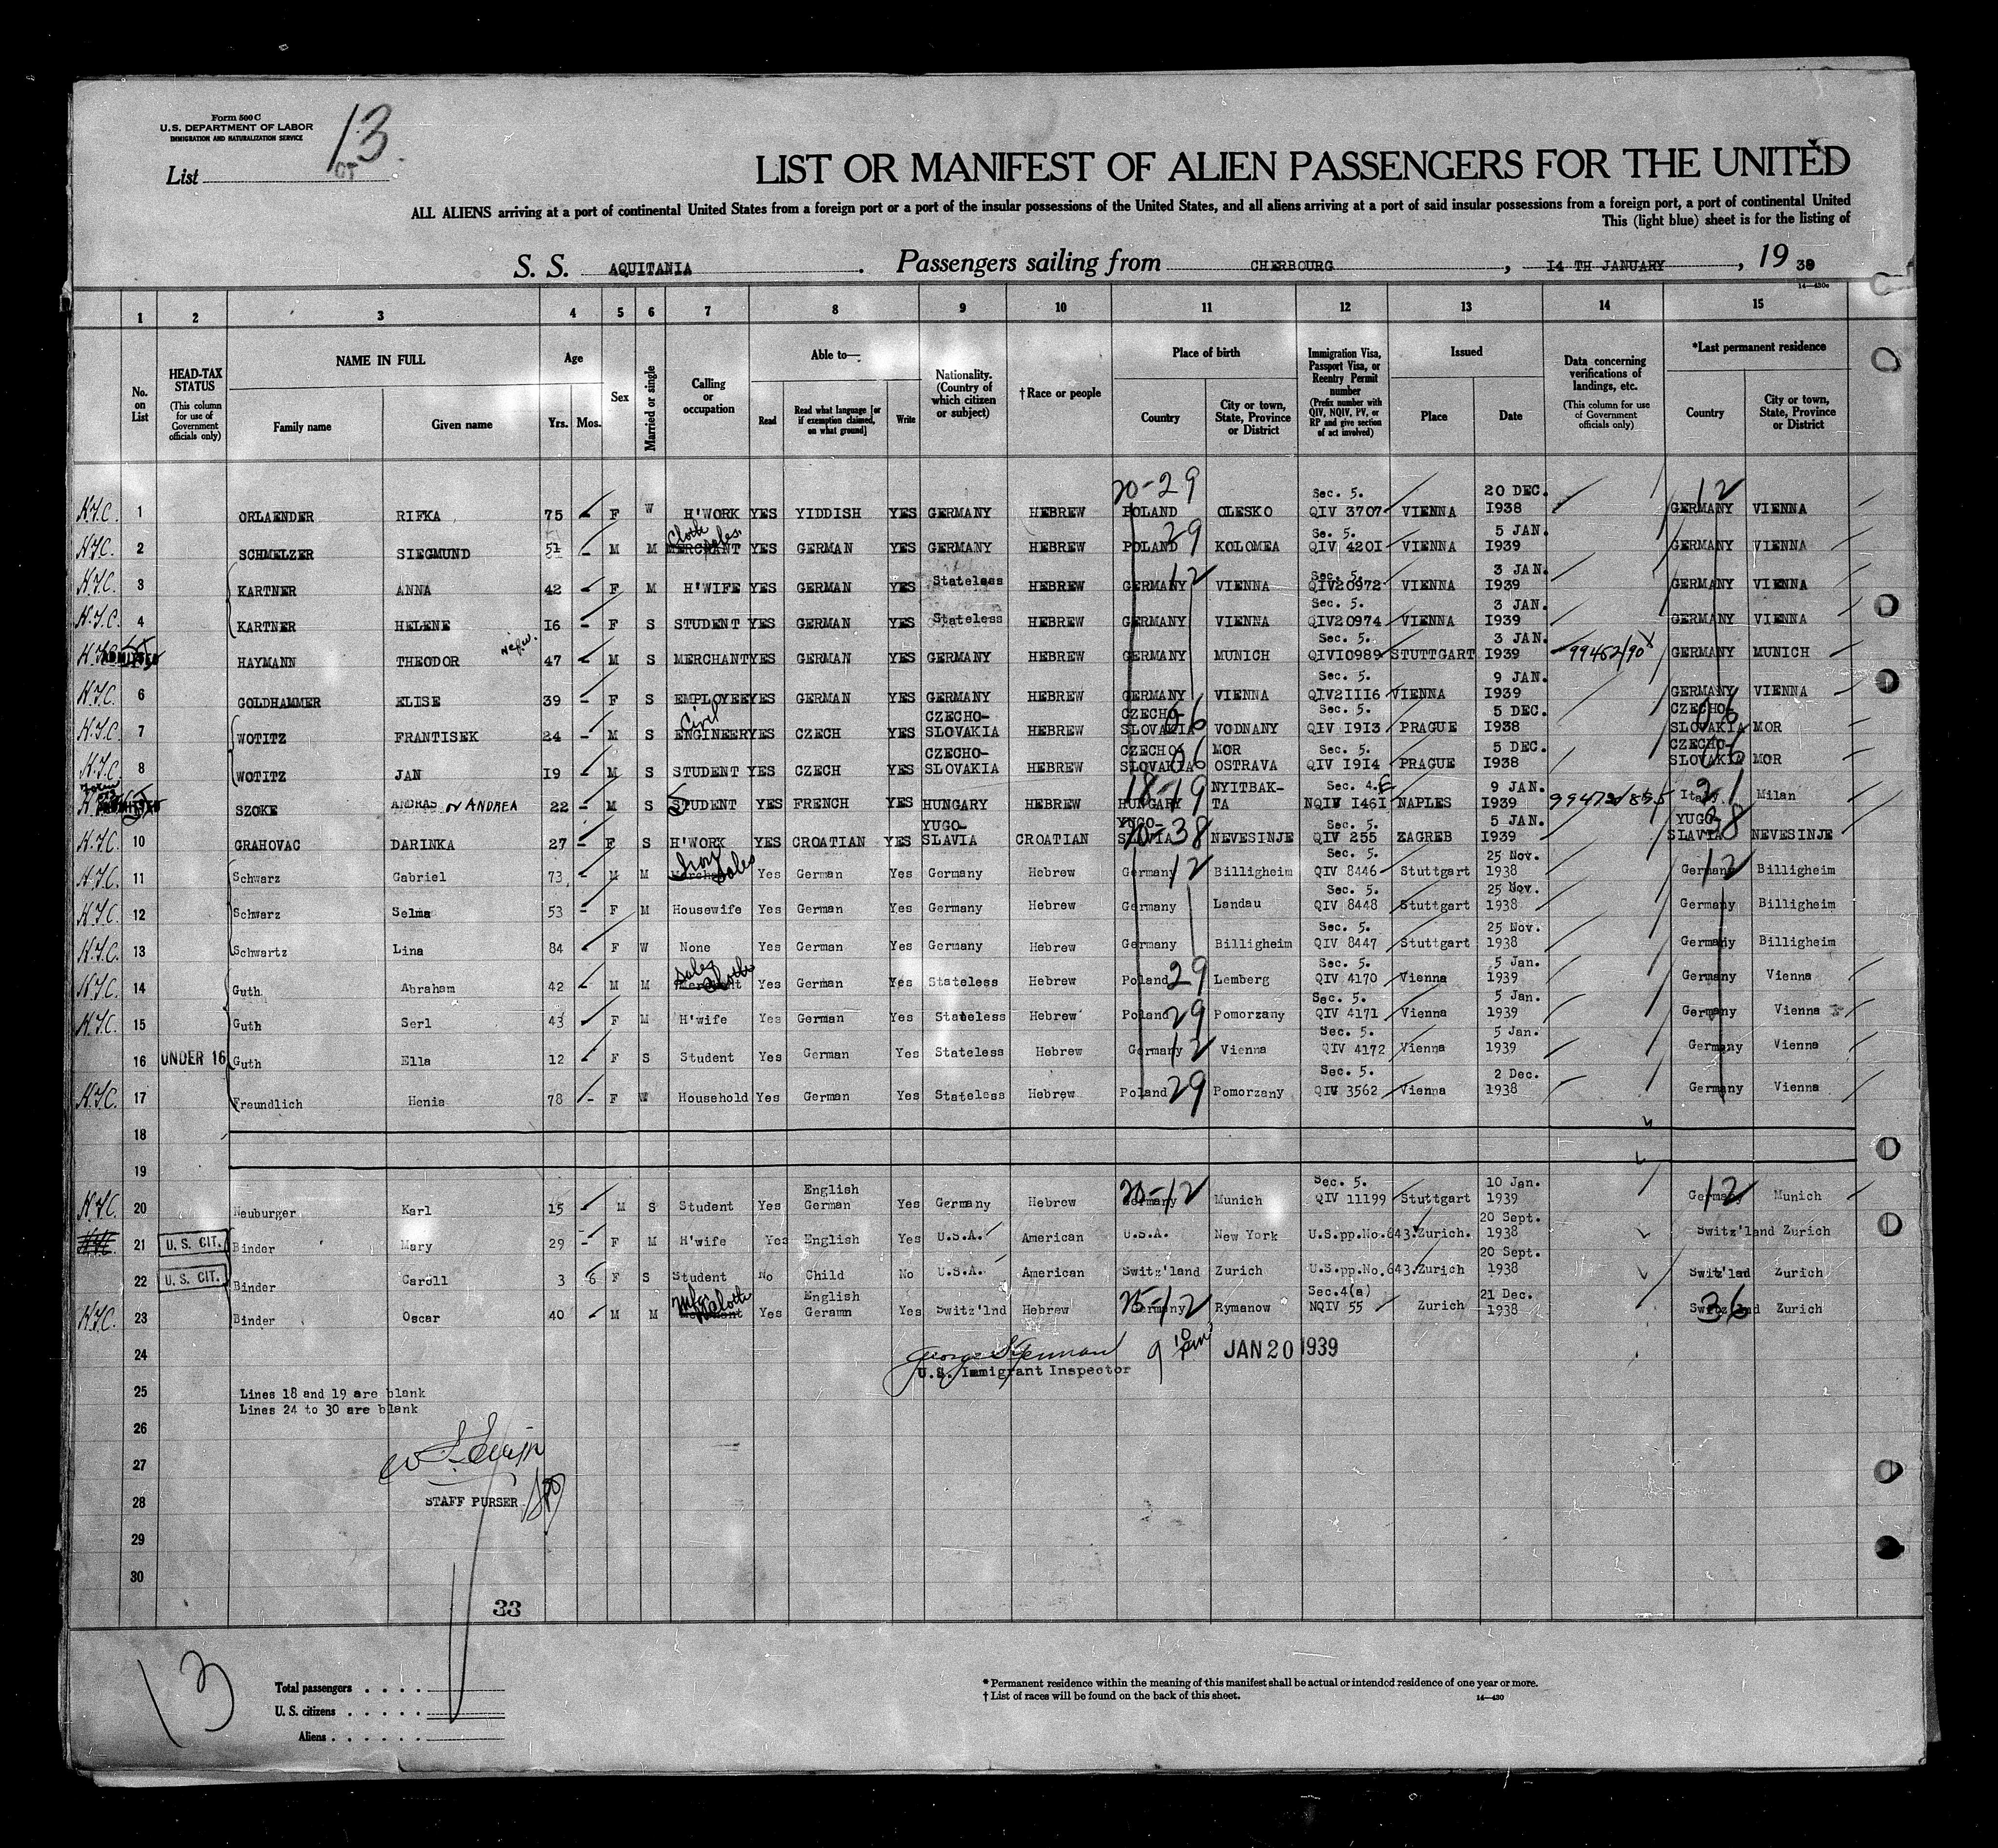 Form 500 C
U.S. DEPARTMENT OF LABOR
IMMIGRATION AND NATURALIZATION SERVICE
13.
List
LIST OR MANIFEST OF ALIEN PASSENGERS FOR THE UNITED
ALL ALIENS arriving at a port of continental United States from a foreign port or a port of the insular possessions of the United States, and all aliens arriving at a port of said insular possessions from a foreign port, a port of continental United
This (light blue) sheet is for the listing of
S. S. AQUITANIA. Passengers sailing from CHERBOURG, I4 TH JANUARY, 19 39
1 2 3 4 5 6 7 8 9 10 11 12 13 14 15
No. on List
HEAD-TAX STATUS (This column for use of Government officials only)
NAME IN FULL Family name Given name
Age Yrs. Mos.
Sex
Married or single
Calling or occupation
Able to— Read Read what language [or if exemption claimed, on what ground] Write
Nationality. (Country of which citizen or subject)
†Race or people
Place of birth Country City or town, State, Province or District
Immigration Visa, Passport Visa, or Reentry Permit number (Prefix number with QIV, NQIV, PV, or RP and give section of act involved)
Issued Place Date
Data concerning verifications of landings, etc. (This column for use of Government officials only)
*Last permanent residence Country City or town, State, Province or District
20-29 Sec. 5. 20 DEC. 12
1 ORLAENDER RIFKA 75 - F W H'WORK YES YIDDISH YES GERMANY HEBREW POLAND OLESKO QIV 3707 VIENNA I938 GERMANY VIENNA
Cloth Sales 29 Se. 5. 5 JAN.
2 SCHMELZER SIEGMUND 51 - M M MERCHANT YES GERMAN YES GERMANY HEBREW POLAND KOLOMEA QIV 420I VIENNA I939 GERMANY VIENNA
12 Sec. 5. 3 JAN.
3 KARTNER ANNA 42 - F M H'WIFE YES GERMAN YES Stateless HEBREW GERMANY VIENNA QIV20972 VIENNA I939 GERMANY VIENNA
Sec. 5. 3 JAN.
4 KARTNER HELENE I6 - F S STUDENT YES GERMAN YES Stateless HEBREW GERMANY VIENNA QIV20974 VIENNA I939 GERMANY VIENNA
Sec. 5. 3 JAN.
ADMITTED HAYMANN THEODOR 47 - M S MERCHANT YES GERMAN YES GERMANY HEBREW GERMANY MUNICH QIVI0989 STUTTGART I939 99452/90 GERMANY MUNICH
Sec. 5. 9 JAN.
6 GOLDHAMMER ELISE 39 - F S EMPLOYEE YES GERMAN YES GERMANY HEBREW GERMANY VIENNA QIV2III6 VIENNA I939 GERMANY VIENNA
Civil CZECHO- CZECHO- 06 Sec. 5. 5 DEC. CZECHO- 06
7 WOTITZ FRANTISEK 24 - M S ENGINEER YES CZECH YES SLOVAKIA HEBREW SLOVAKIA VODNANY QIV I9I3 PRAGUE I938 SLOVAKIA MOR
CZECHO- CZECHO- 06 MOR Sec. 5. 5 DEC. CZECHO- 06
8 WOTITZ JAN I9 - M S STUDENT YES CZECH YES SLOVAKIA HEBREW SLOVAKIA OSTRAVA QIV I9I4 PRAGUE I938 SLOVAKIA MOR
18-19 NYITBAK- Sec. 4.E 9 JAN. 21
ADMITTED SZOKE ANDRAS or ANDREA 22 - M S STUDENT YES FRENCH YES HUNGARY HEBREW HUNGARY TA NQIV I46I NAPLES I939 Italy Milan
YUGO- YUGO- 20-38 Sec. 5. 5 JAN. YUGO- 38
10 GRAHOVAC DARINKA 27 - F S H'WORK YES CROATIAN YES SLAVIA CROATIAN SLAVIA NEVESINJE QIV 255 ZAGREB I939 SLAVIA NEVESINJE
Iron Sales 12 Sec. 5. 25 Nov. 12
11 Schwarz Gabriel 73 - M M Merchant Yes German Yes Germany Hebrew Germany Billigheim QIV 8446 Stuttgart 1938 Germany Billigheim
Sec. 5. 25 Nov.
12 Schwarz Selma 53 - F M Housewife Yes German Yes Germany Hebrew Germany Landau QIV 8448 Stuttgart 1938 Germany Billigheim
Sec. 5. 25 Nov.
13 Schwartz Lina 84 F W None Yes German Yes Germany Hebrew Germany Billigheim QIV 8447 Stuttgart 1938 Germany Billigheim
Sales Cloth 29 Sec. 5. 5 Jan.
14 Guth Abraham 42 - M M Merchant Yes German Yes Stateless Hebrew Poland Lemberg QIV 4170 Vienna 1939 Germany Vienna
29 Sec. 5. 5 Jan.
15 Guth Serl 43 F M H'wife Yes German Yes Stateless Hebrew Poland Pomorzany QIV 4171 Vienna 1939 Germany Vienna
12 Sec. 5. 5 Jan.
16 UNDER 16 Guth Ella 12 - F S Student Yes German Yes Stateless Hebrew Germany Vienna QIV 4172 Vienna 1939 Germany Vienna
29 Sec. 5. 2 Dec.
17 Freundlich Henia 78 - F W Household Yes German Yes Stateless Hebrew Poland Pomorzany QIV 3562 Vienna 1938 Germany Vienna
18
19
English 20-12 Sec. 5. 10 Jan. 12
20 Neuburger Karl 15 M S Student Yes German Yes Germany Hebrew Germany Munich QIV 11199 Stuttgart 1939 Germany Munich
20 Sept.
21 U. S. CIT. Binder Mary 29 - F M H'wife Yes English Yes U.S.A. American U.S.A. New York U.S.pp.No.643. Zurich. 1938 Switz'land Zurich
20 Sept.
22 U. S. CIT. Binder Caroll 3 6 F S Student No Child No U.S.A. American Switz'land Zurich U.S.pp.No.643. Zurich 1938 Switz'lad Zurich
Mfg. Cloth English 25-12 Sec.4(a) 21 Dec. 36
23 Binder Oscar 40 M M Merchant Yes Geramn Yes Switz'lnd Hebrew Germany Rymanow NQIV 55 Zurich 1938 Switzland Zurich
24 9 10 pm JAN 20 1939
U.S. Immigrant Inspector
25 Lines 18 and 19 are blank
Lines 24 to 30 are blank
26
27
28 STAFF PURSER
29
30
33
13
Total passengers . . . .
U. S. citizens . . . . .
Aliens . . . . . .
*Permanent residence within the meaning of this manifest shall be actual or intended residence of one year or more.
†List of races will be found on the back of this sheet.
14—430